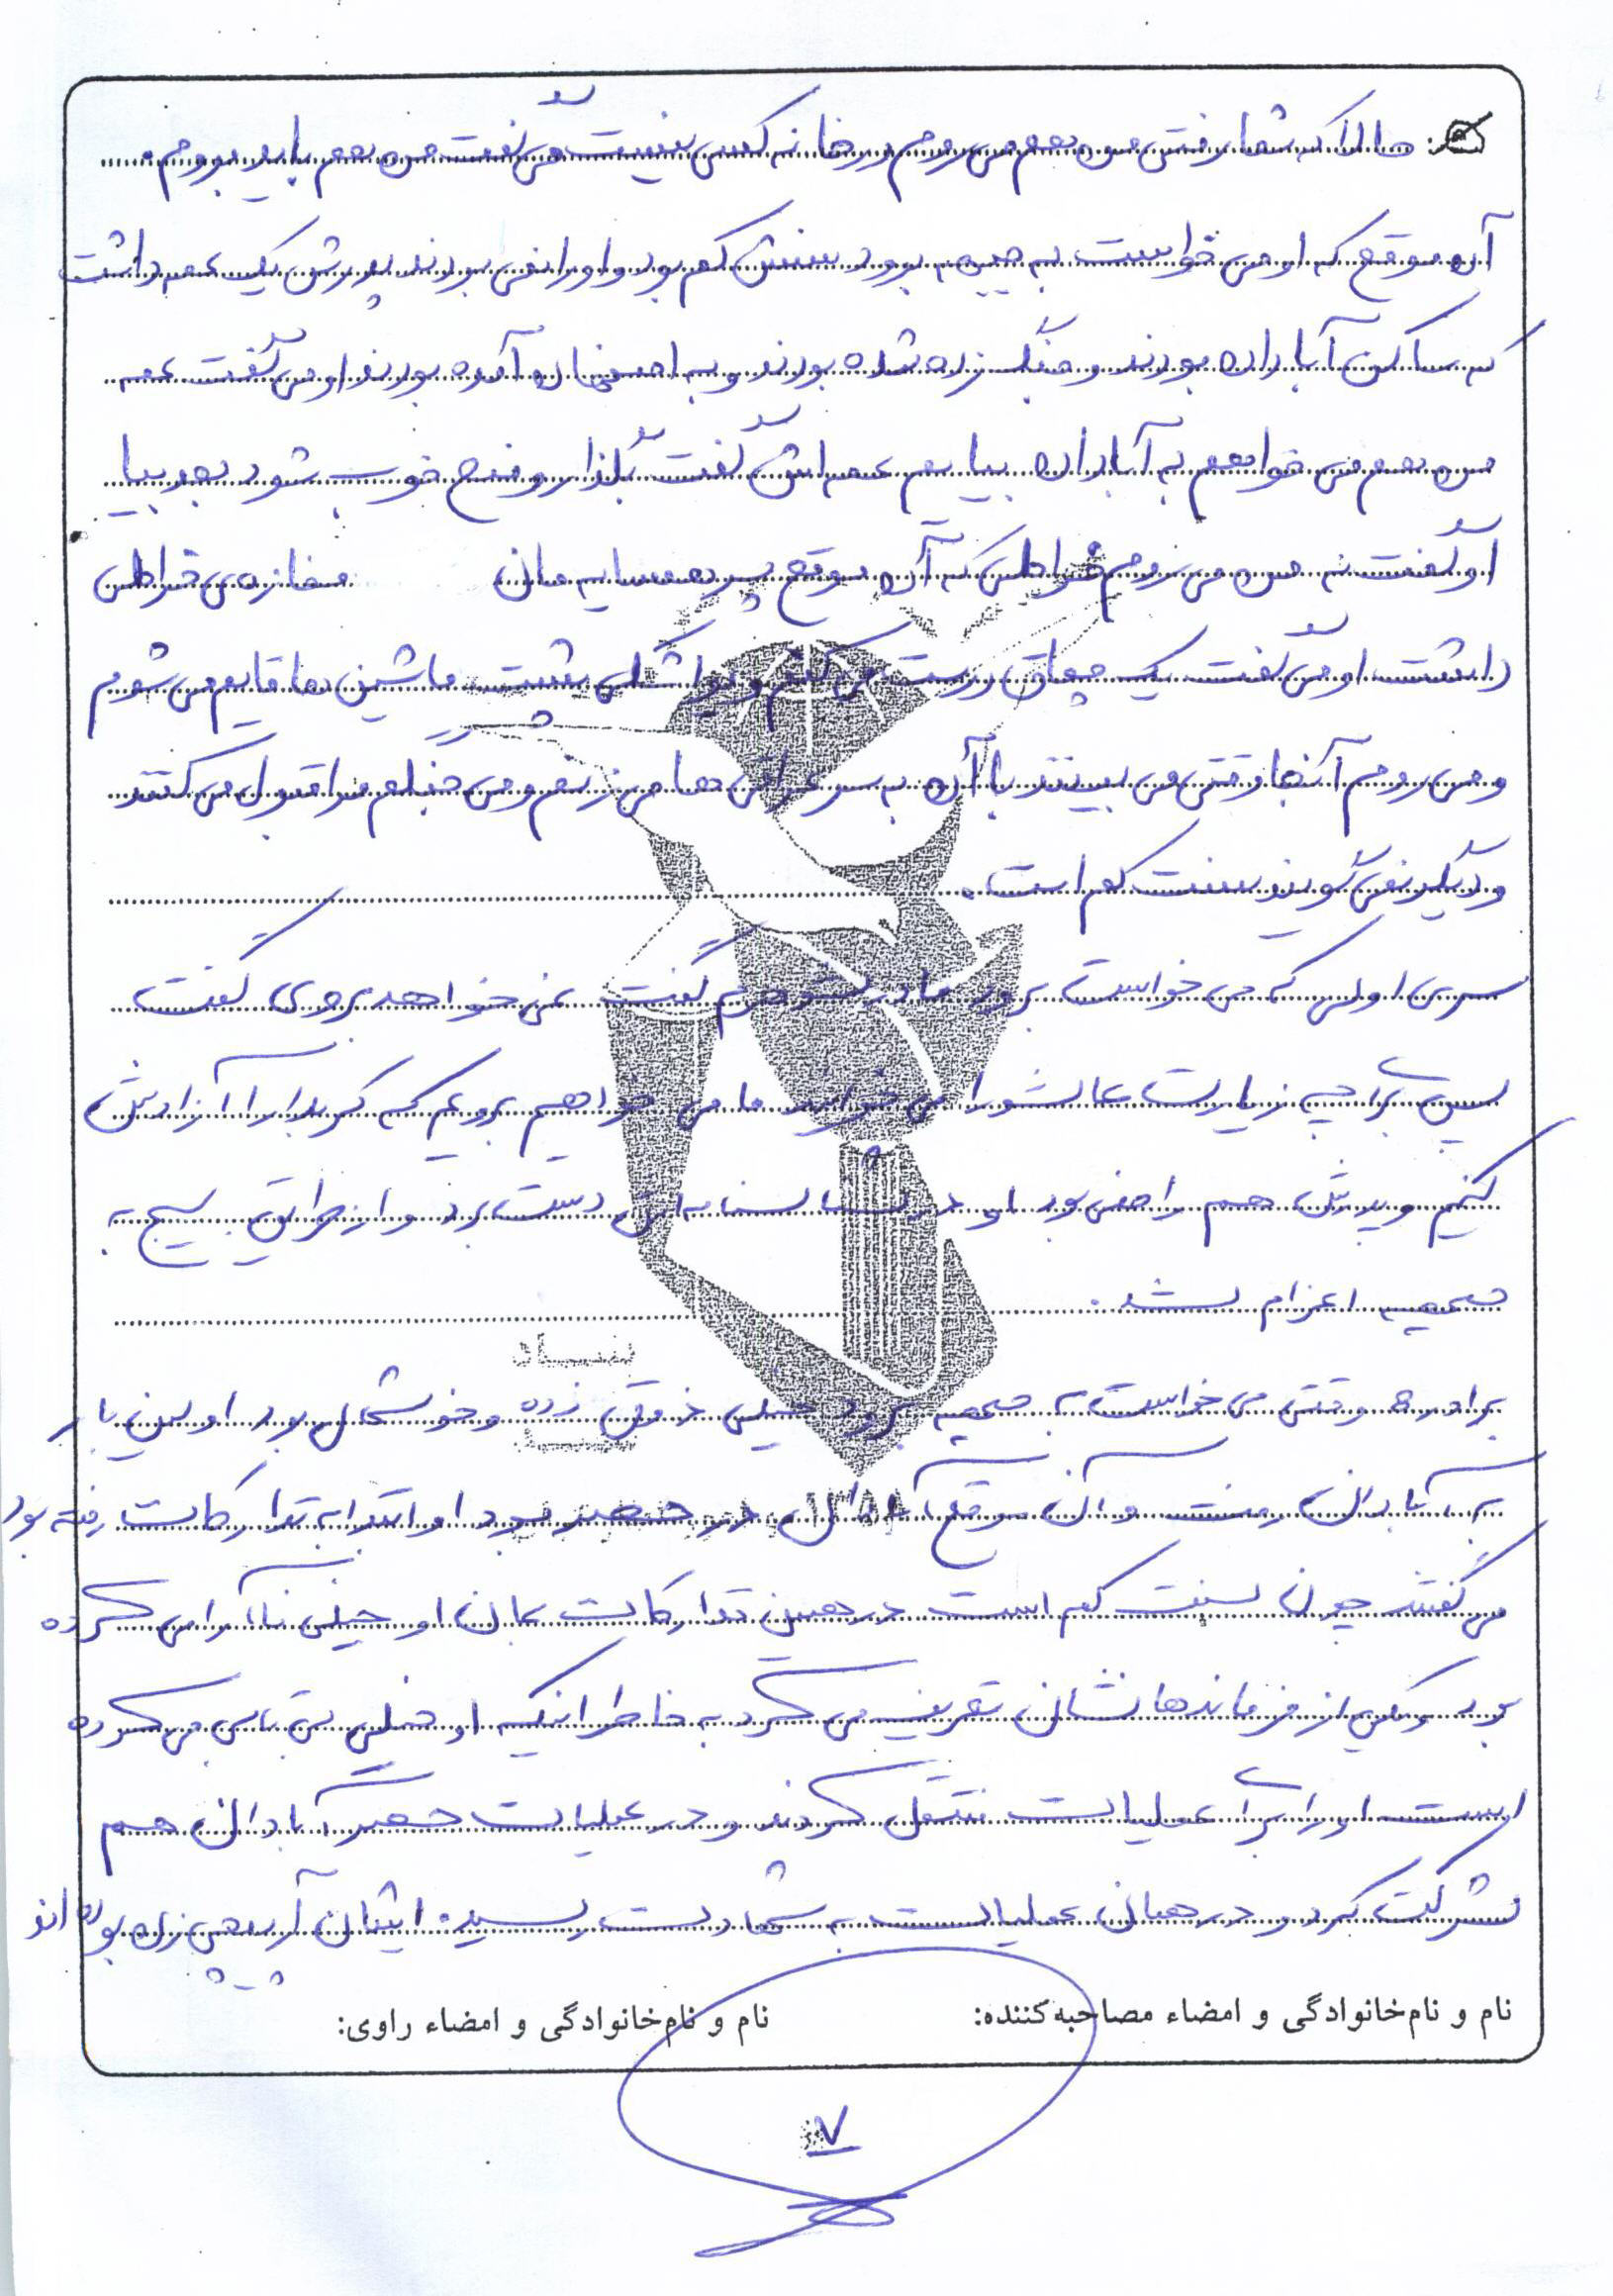 حالا که شما رفتی من هم می روم در خانه کسی نیست می گفت من هم باید بروم.
آن موقع که او می خواست به جبهه برود سنش کم بود و او را نمی بردند پدرش یک عمه داشت
که ساکن آبادان بودند و جنگ زده شده بودند و به اصفهان آمده بودند او می گفت عمه
من هم می خواهم به آبادان بیایم عمه اش گفت بگذار وضع خوب شود بعد بیا
او گفت نه من می روم خراطی که آن موقع پسر همسایه مان مغازه ی خراطی
داشت او می گفت یک چماق درست می کنم و یواشکی پشت ماشین ها قایم می شوم
و می روم آنجا وقتی می بینند با آن به سر عراقی ها می زنم و می جنگم مرا قبول می کنند
و دیگر نمی گویند سنت کم است.
سری اولی که می خواست برود مادر شوهرم گفت نمی خواهد بروی گفت
پس برا چه زیارت عاشورا می خوانید ما می خواهیم برویم که کربلا را آزادش
کنیم و پدرش هم راضی بود او در شناسنامه اش دست برد و از طریق بسیج به
جبهه اعزام شد.
برادرم وقتی می خواست به جبهه برود خیلی ذوق زده و خوشحال بود اولین بار
به آبادان رفت و آن موقع آبادان در حصر بود او ابتدا به تدارکات رفته بود
می گفتند چون سنت کم است در همین تدارکات بمان او خیلی ناآرامی کرده
بود و یکی از فرمانده هاشان تعریف می کرد به خاطر اینکه او خیلی بی تابی می کرده
است او را برای عملیات منتقل کردند و در عملیات حصر آبادان هم
شرکت کرد و در همان عملیات به شهادت رسید. ایشان آرپیجی زن بوده اند
نام و نام‌خانوادگی و امضاء مصاحبه‌کننده: نام و نام‌خانوادگی و امضاء راوی:
۷